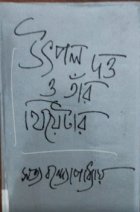 উৎপল দত্ত
ও তাঁর
থিয়েটার
সত্য বন্দ্যোপাধ্যায়